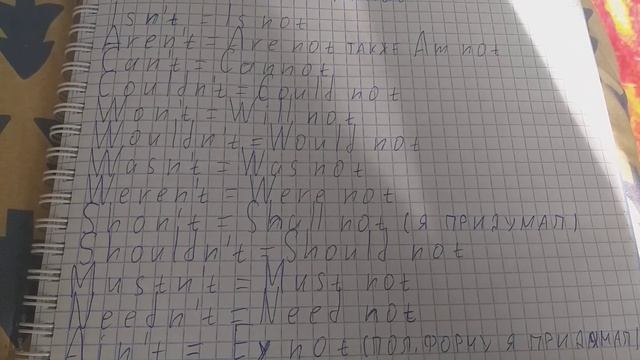 Isn't = Is not
Aren't = Are not ТАКЖЕ Am not
Can't = Cannot
Couldn't = Could not
Won't = Will not
Wouldn't = Would not
Wasn't = Was not
Weren't = Were not
Shon't = Shall not (Я ПРИДУМАЛ)
Shouldn't = Should not
Mustn't = Must not
Needn't = Need not
Ain't = Ey not (ПОЛ.ФОРМУ Я ПРИДУМАЛ